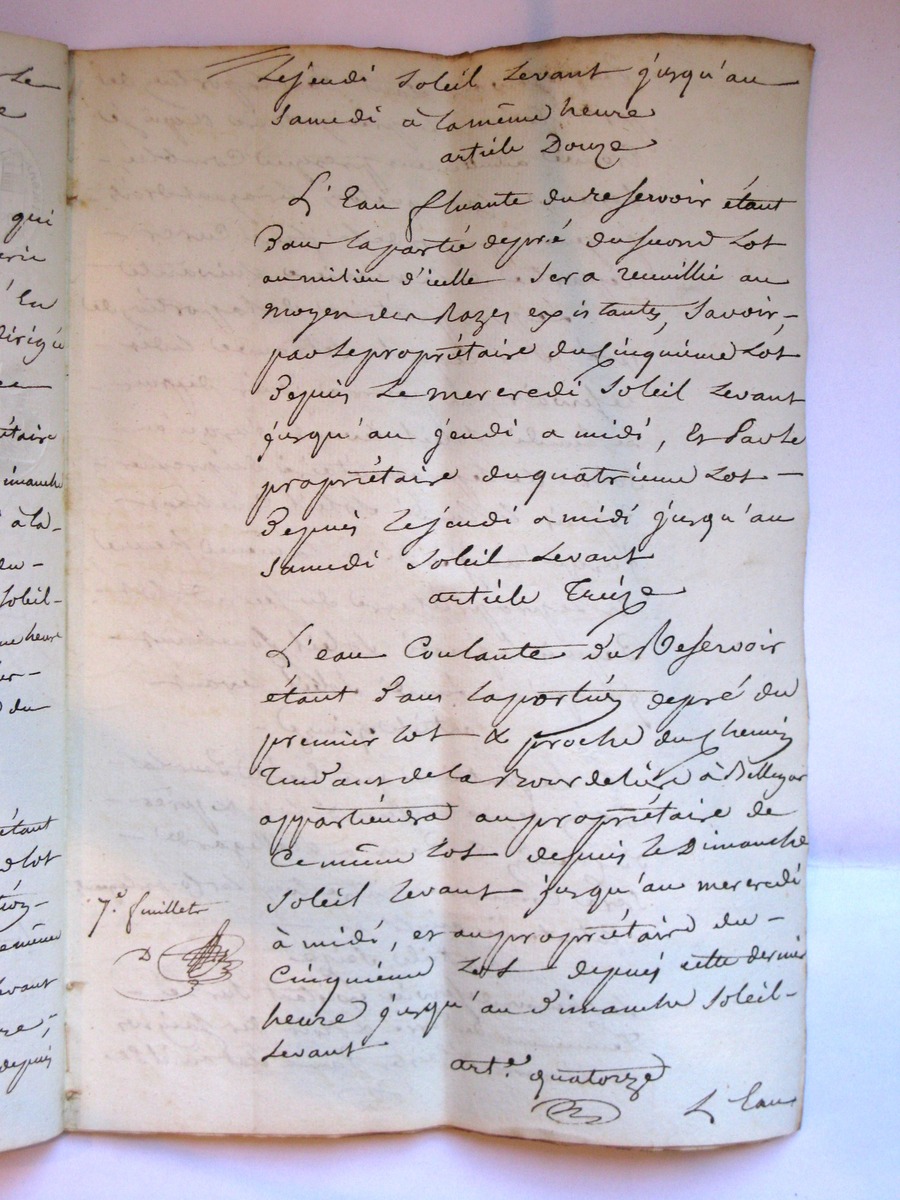 Le
qui
En
dirigée
imanche
à la -
du -
Soleil -
me heure
du
étant
lot
evant
depuis
Le jeudi Soleil Levant jusqu'au
Samedi à la même heure
article Douze
L'Eau fluante du reservoir étant
Dans la partié de pré du second Lot
au milieu d'icelle Sera recuillie au
moyen des Razes existantes, Savoir, -
par Le propriétaire du Cinquième Lot
Depuis Le mercredi Soleil Levant
jusqu'au jeudi a midi, Et Par Le
propriétaire du quatrieme Lot -
Depuis le jeudi a midi jusqu'au
Samedi Soleil Levant
article Treize
L'eau Coulante du Reservoir
étant Dans la portion de pré du
premier lot & proche du Chemin
Tendant de la à
appartiendra au propriétaire de
Ce même lot depuis le Dimanche
Soleil levant jusqu'au mercredi
à midi, et au propriétaire du -
Cinquième Lot depuis cette dernière
heure jusqu'au Dimanche Soleil -
Levant
7.e feuillet
art.e quatorze
L'Eau